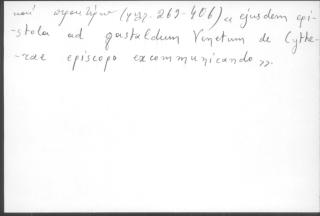 καὶ (σελ. 269-406) « ejusdem epi-
stola ad gastaldum Venetum de Cythe-
-rae episcopo excommunicando ».